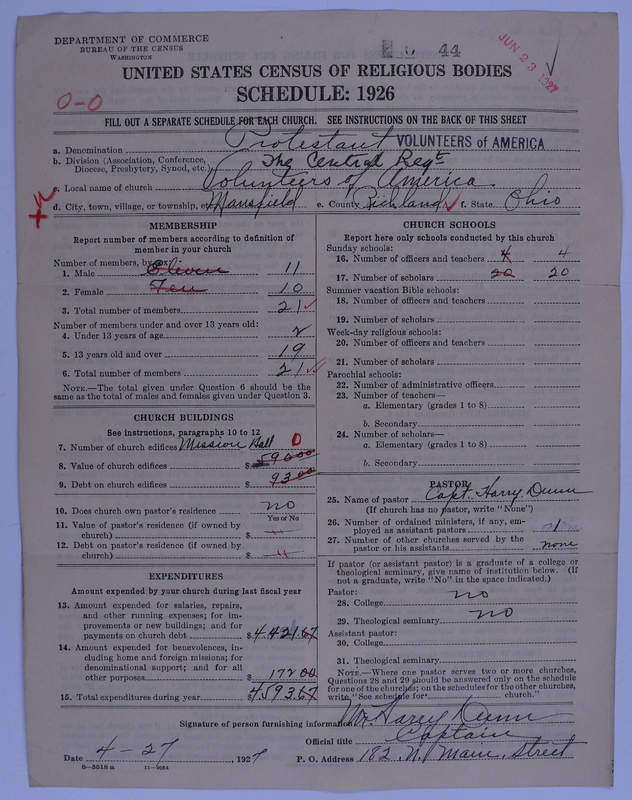 DEPARTMENT OF COMMERCE
BUREAU OF THE CENSUS
WASHINGTON
44
JUN 23 1927
UNITED STATES CENSUS OF RELIGIOUS BODIES
SCHEDULE: 1926
0-0
FILL OUT A SEPARATE SCHEDULE FOR EACH CHURCH. SEE INSTRUCTIONS ON THE BACK OF THIS SHEET
a. Denomination Protestant VOLUNTEERS of AMERICA
b. Division (Association, Conference, Diocese, Presbytery, Synod, etc.) The Central Regt
c. Local name of church Volunteers of America
d. City, town, village, or township, etc. Mansfield e. County Richland f. State Ohio
MEMBERSHIP
Report number of members according to definition of
member in your church
Number of members, by sex:
1. Male Eleven 11
2. Female Ten 10
3. Total number of members 21
Number of members under and over 13 years old:
4. Under 13 years of age 2
5. 13 years old and over 19
6. Total number of members 21
NOTE.—The total given under Question 6 should be
same as the total of males and females given under Question 3.
CHURCH BUILDINGS
See instructions, paragraphs 10 to 12
7. Number of church edifices Mission Hall 0
8. Value of church edifices $ 5900
9. Debt on church edifices $ 9300
10. Does church own pastor's residence no
Yes or No
11. Value of pastor's residence (if owned by
church) $
12. Debt on pastor's residence (if owned by
church) $
EXPENDITURES
Amount expended by your church during last fiscal year
13. Amount expended for salaries, repairs,
and other running expenses; for im-
provements or new buildings; and for
payments on church debt $ 4421.67
14. Amount expended for benevolences, in-
cluding home and foreign missions; for
denominational support; and for all
other purposes 172 00
15. Total expenditures during year $ 4593.67
CHURCH SCHOOLS
Report here only schools conducted by this church
Sunday schools:
16. Number of officers and teachers 4 4
17. Number of scholars 20 20
Summer vacation Bible schools:
18. Number of officers and teachers
19. Number of scholars
Week-day religious schools:
20. Number of officers and teachers
21. Number of scholars
Parochial schools:
22. Number of administrative officers
23. Number of teachers—
a. Elementary (grades 1 to 8)
b. Secondary
24. Number of scholars—
a. Elementary (grades 1 to 8)
b. Secondary
PASTOR
25. Name of pastor Capt. Harry Dunn
(If church has no pastor, write "None")
26. Number of ordained ministers, if any, em-
ployed as assistant pastors 1
27. Number of other churches served by the
pastor or his assistants none
If pastor (or assistant pastor) is a graduate of a college or
theological seminary, give name of institution below. (If
not a graduate, write "No" in the space indicated.)
Pastor:
28. College no
29. Theological seminary no
Assistant pastor:
30. College
31. Theological seminary
NOTE.—Where one pastor serves two or more churches,
Questions 28 and 29 should be answered only on the schedule
for one of the churches; on the schedules for the other churches,
write "See schedule for church."
Signature of person furnishing information Harry Dunn
Official title Captain
Date 4-27, 1927 P. O. Address 182 N. Main, Street
8-5518a 11-9084